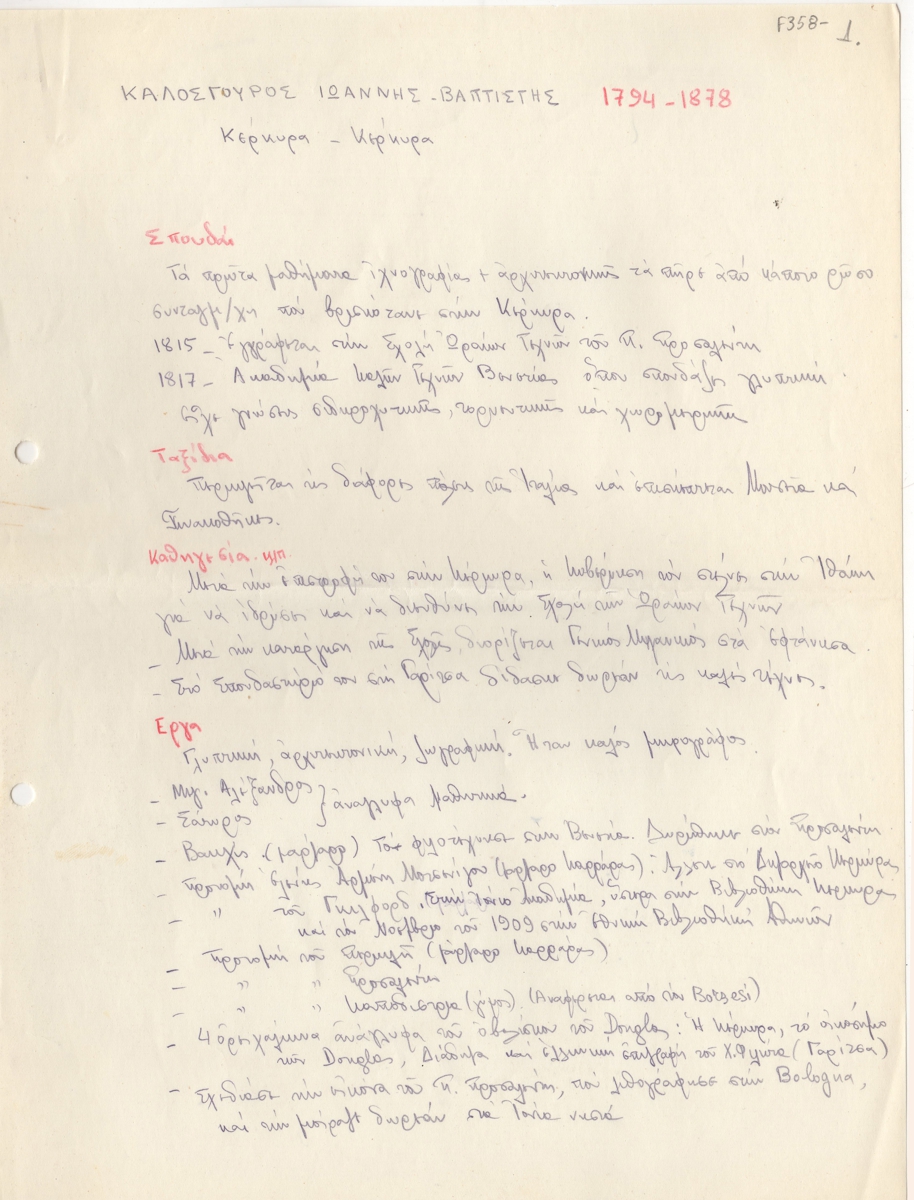 F358- 1.
ΚΑΛΟΣΓΟΥΡΟΣ ΙΩΑΝΝΗΣ - ΒΑΠΤΙΣΤΗΣ 1794-1878
Κέρκυρα - Κέρκυρα
Σπουδαί
Τά πρῶτα μαθήματα ἰχνογραφίας + ἀρχιτεκτονικῆς τά πῆρε ἀπό κάποιο ρῶσο
συνταγμ/χη πού βρισκόταν στήν Κέρκυρα.
1815 - Ἐγγράφεται στήν Σχολή Ὡραίων Τεχνῶν τοῦ Π. Προσαλένδη
1817 - Ἀκαδημία Καλῶν Τεχνῶν Βενετίας ὅπου σπουδάζει γλυπτική.
Εἶχε γνώσεις σιδηροχυτικῆς, τορνευτικῆς καί χωρομετρικῆς
Ταξίδια
Περιηγεῖται εἰς διάφορες πόλεις τῆς Ἰταλίας καί ἐπισκέπτεται Μουσεῖα καί
Πινακοθῆκες.
Καθηγεσία κλπ.
Μετά τήν ἐπιστροφή του στήν Κέρκυρα, ἡ Κυβέρνηση τόν στέλνει στήν Ἰθάκη
γιά νά ἱδρύσει καί νά διευθύνει τήν Σχολή τῶν Ὡραίων Τεχνῶν
- Μετά τήν κατάργηση τῆς Σχολῆς, διορίζεται Γενικός Μηχανικός στά Ἑφτάνησα.
- Στό Σπουδαστήριό του στή Γαρίτσα δίδασκε δωρεάν τίς καλές τέχνες.
Εργα
Γλυπτική, ἀρχιτεκτονική, ζωγραφική. Ἦταν καλός μικρογράφος.
- Μεγ. Ἀλέξανδρος
- Σάτυρος } ἀνάγλυφα μαθητικά.
- Βάκχις. (μάρμαρο) Τό φιλοτέχνησε στήν Βενετία. Δωρήθηκε στόν Προσαλένδη
- Προτομή Ἑλένης Ἀρμένη Μοτσενίγου (μάρμαρο Καρράρας). στό Δημαρχεῖο Κερκύρας
- " τοῦ Γκίλφορδ. Στήν Ἰόνιο Ἀκαδημία, ὕστερα στήν Βιβλιοθήκη Κερκύρας
καί τόν Νοέμβριο τοῦ 1909 στήν Ἐθνική Βιβλιοθήκη Ἀθηνῶν
- Προτομή τοῦ (μάρμαρο Καρράρας)
- " " Προσαλένδη
- " " Καποδίστρια (γύψος) (Ἀναφέρεται ἀπό τόν Borgesi)
- 4 ὀρειχάλκινα ἀνάγλυφα τοῦ ὀβελίσκου τοῦ Douglas: Ἡ Κέρκυρα, τό οἰκόσημο
τῶν Douglas, Διάδημα καί ἑλληνική ἐπιγραφή τοῦ Χ. Φιλητᾶ (Γαρίτσα)
- Σχεδίασε τήν εἰκόνα τοῦ Π. Προσαλένδη, πού λιθογράφησε στήν Bologna,
καί τήν μοίρασε δωρεάν στά Ἰόνια νησιά